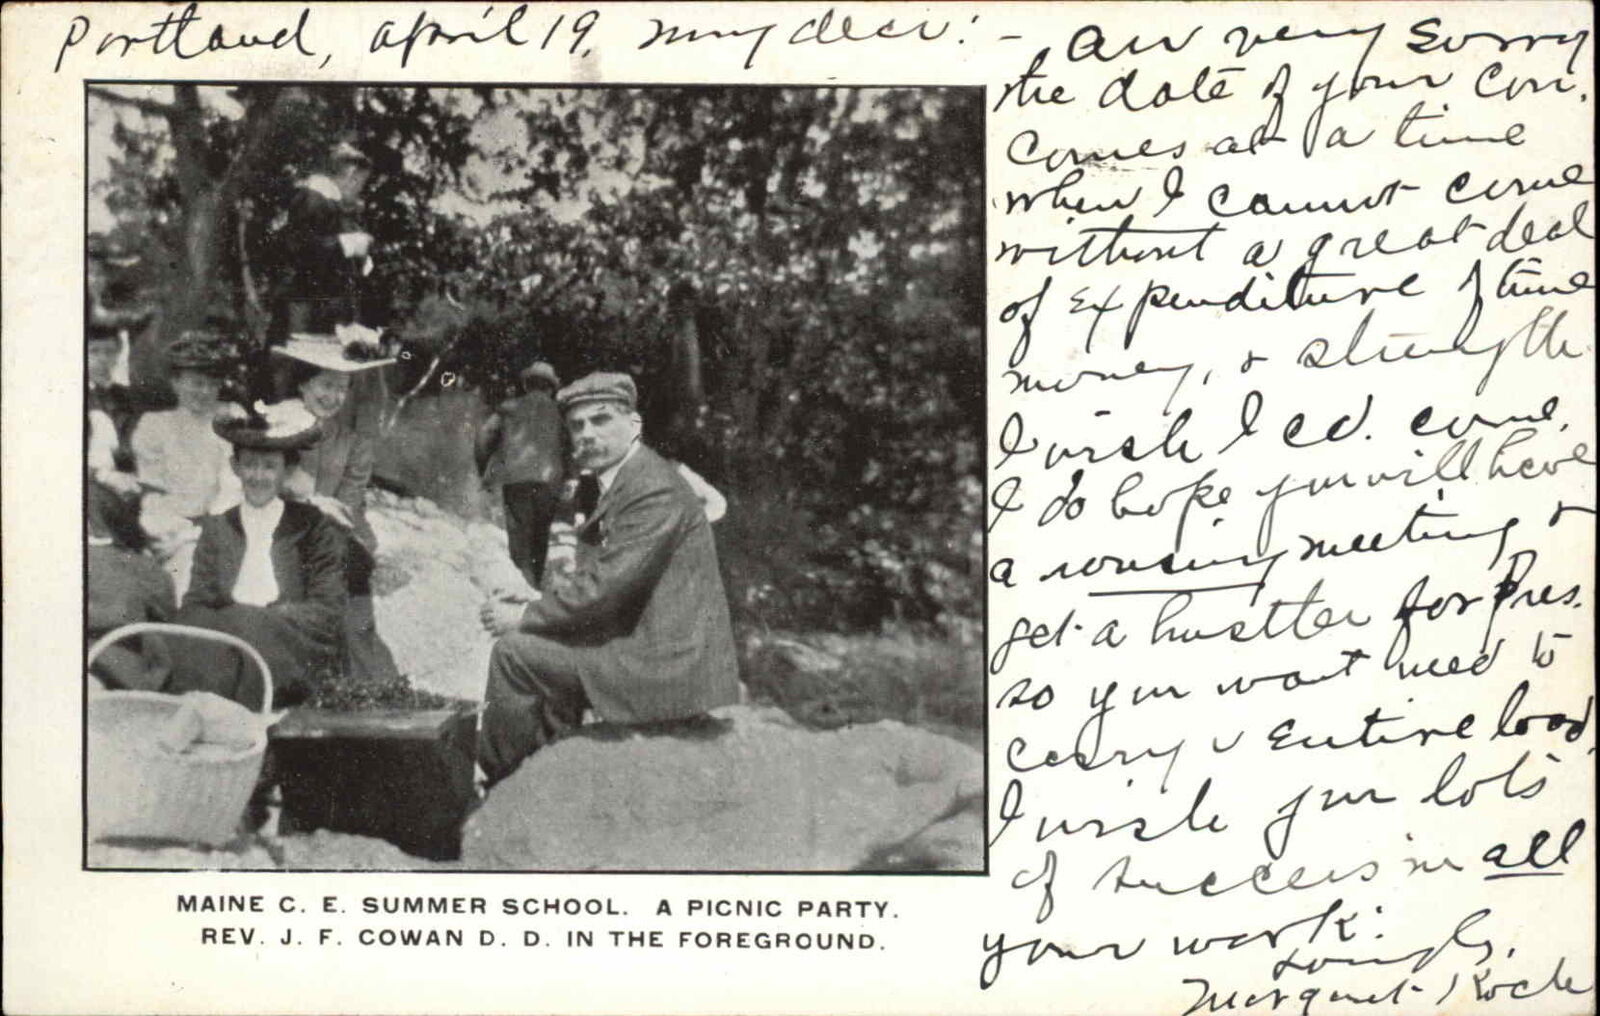 Portland, April 19, my dear: - Am very sorry
the date of your con.
comes at a time
when I cannot come
without a great deal
of expenditure of time
money, & strength.
I wish I cd. come.
I do hope you will have
a rousing meeting &
get a hustler for Pres.
so you wont need to
carry entire load.
I wish you lots
of success in all
your work.
Lovingly,
Margaret Koch
MAINE C. E. SUMMER SCHOOL. A PICNIC PARTY.
REV. J. F. COWAN D. D. IN THE FOREGROUND.